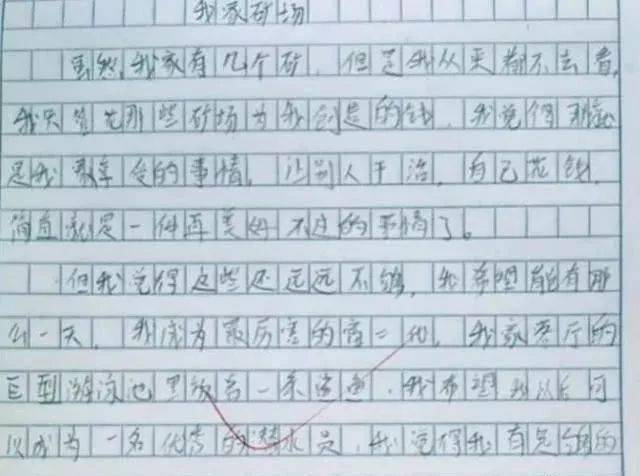 我家矿场
虽然我家有几个矿,但是我从来都不去看,
我只管花那些矿场为我创造的钱,我觉得那就
是我最享受的事情,让别人干活,自己花钱,
简直就是一件再美好不过的事情了。
但我觉得这些还远远不够,我希望能有那
么一天,我成为最厉害的富二代,我家客厅的
巨型游泳池里 一条鲨鱼,我希望我从后可
以成为一名优秀的潜水员,我觉得我有足够的